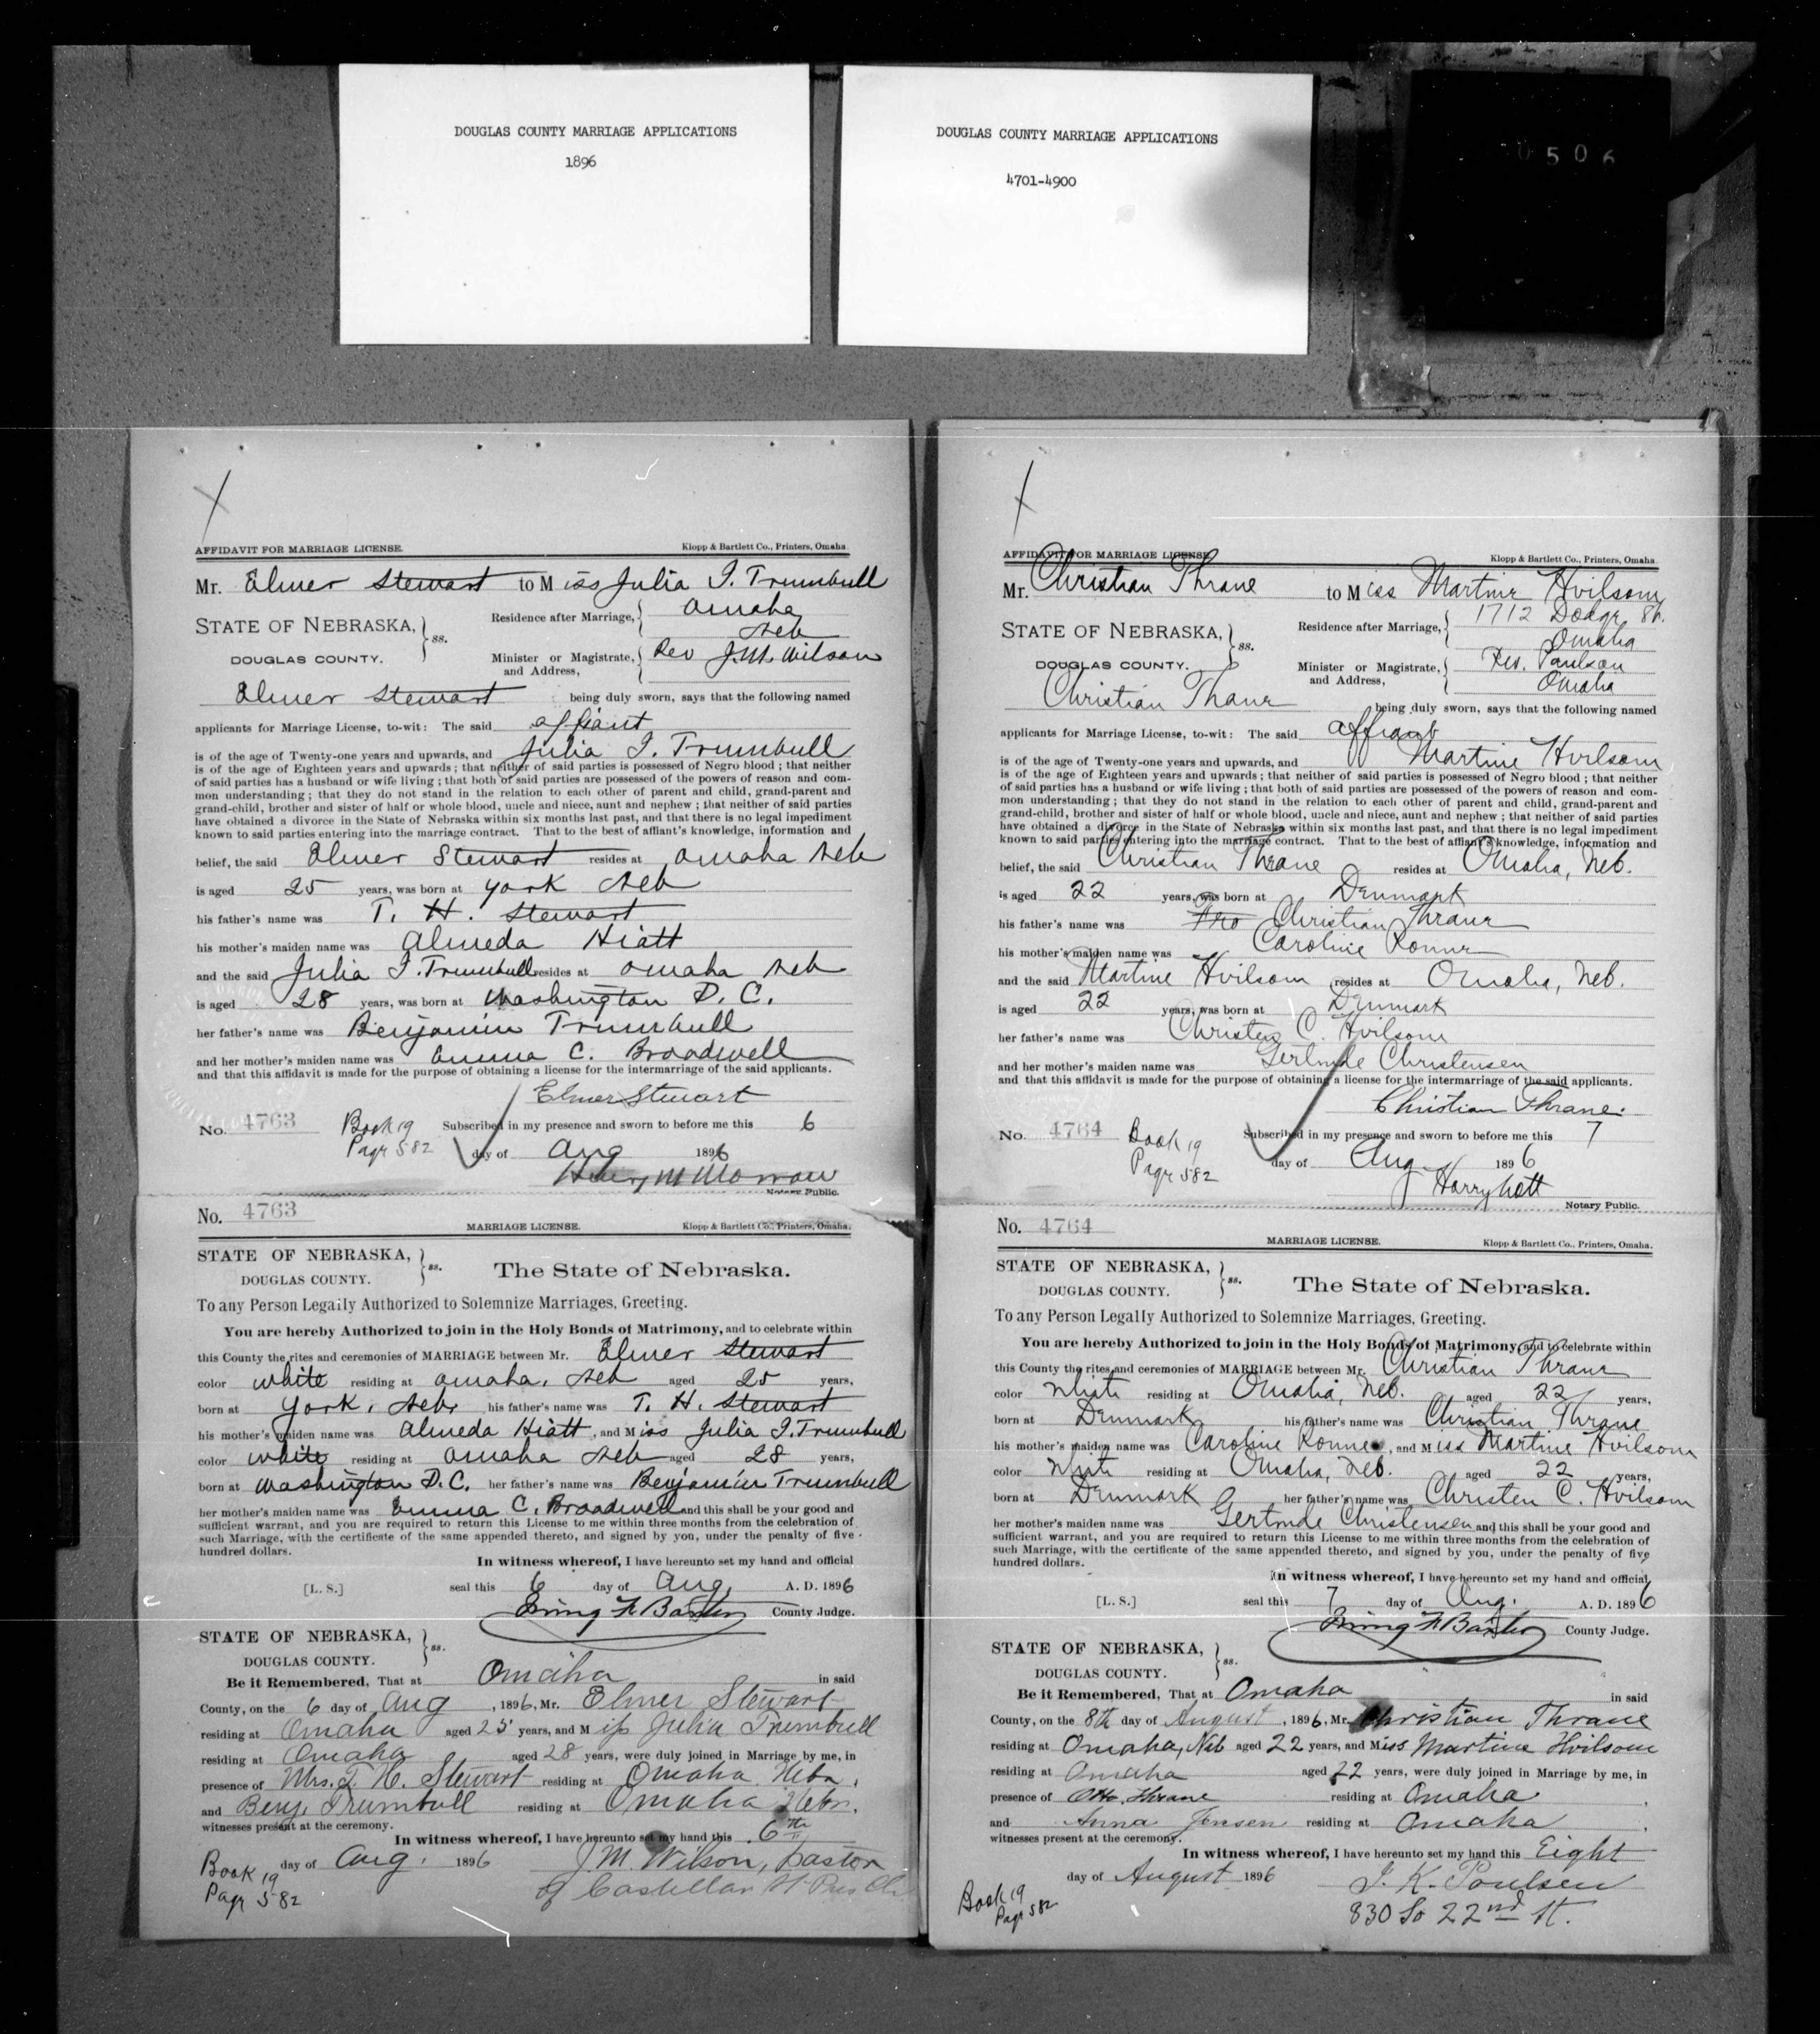 DOUGLAS COUNTY MARRIAGE APPLICATIONS
1896
DOUGLAS COUNTY MARRIAGE APPLICATIONS
4701-4900
0506
AFFIDAVIT FOR MARRIAGE LICENSE. Klopp & Bartlett Co., Printers, Omaha.
Mr. Elmer Stewart to Miss Julia I. Trumbull
Residence after Marriage, Omaha
Neb
STATE OF NEBRASKA, ss.
DOUGLAS COUNTY.
Minister or Magistrate, Rev J.M. Wilson
and Address,
Elmer Stewart being duly sworn, says that the following named
applicants for Marriage License, to-wit: The said affiant
is of the age of Twenty-one years and upwards, and Julia I. Trumbull
is of the age of Eighteen years and upwards; that neither of said parties is possessed of Negro blood; that neither
of said parties has a husband or wife living; that both of said parties are possessed of the powers of reason and com-
mon understanding; that they do not stand in the relation to each other of parent and child, grand-parent and
grand-child, brother and sister of half or whole blood, uncle and niece, aunt and nephew; that neither of said parties
have obtained a divorce in the State of Nebraska within six months last past, and that there is no legal impediment
known to said parties entering into the marriage contract. That to the best of affiant's knowledge, information and
belief, the said Elmer Stewart resides at Omaha Neb
is aged 25 years, was born at York Neb
his father's name was T. H. Stewart
his mother's maiden name was Almeda Hiatt
and the said Julia I. Trumbull resides at Omaha Neb
is aged 28 years, was born at Washington D. C.
her father's name was Benjamin Trumbull
and her mother's maiden name was Emma C. Broadwell
and that this affidavit is made for the purpose of obtaining a license for the intermarriage of the said applicants.
Elmer Stewart
No. 4763 Book 19 Subscribed in my presence and sworn to before me this 6
Page 582 day of Aug 1896
Henry M Morrow
Notary Public.
No. 4763
MARRIAGE LICENSE. Klopp & Bartlett Co., Printers, Omaha.
STATE OF NEBRASKA, ss.
DOUGLAS COUNTY. The State of Nebraska.
To any Person Legally Authorized to Solemnize Marriages, Greeting.
You are hereby Authorized to join in the Holy Bonds of Matrimony, and to celebrate within
this County the rites and ceremonies of MARRIAGE between Mr. Elmer Stewart
color white residing at Omaha, Neb aged 25 years,
born at York, Neb, his father's name was T. H. Stewart
his mother's maiden name was Almeda Hiatt, and Miss Julia I. Trumbull
color white residing at Omaha Neb aged 28 years,
born at Washington D.C. her father's name was Benjamin Trumbull
her mother's maiden name was Emma C. Broadwell and this shall be your good and
sufficient warrant, and you are required to return this License to me within three months from the celebration of
such Marriage, with the certificate of the same appended thereto, and signed by you, under the penalty of five
hundred dollars.
In witness whereof, I have hereunto set my hand and official
[L. S.] seal this 6 day of Aug, A. D. 1896
Irving F. Baxter County Judge.
STATE OF NEBRASKA, ss.
DOUGLAS COUNTY.
Be it Remembered, That at Omaha in said
County, on the 6 day of Aug, 1896, Mr. Elmer Stewart
residing at Omaha aged 25 years, and Miss Julia Trumbull
residing at Omaha aged 28 years, were duly joined in Marriage by me, in
presence of Mrs. T. H. Stewart residing at Omaha Nebr,
and Benj. Trumbull residing at Omaha Nebr.
witnesses present at the ceremony.
In witness whereof, I have hereunto set my hand this 6th
day of Aug. 1896 J. M. Wilson, Pastor
Book 19 of Castellar St Pres Ch
Page 582
AFFIDAVIT FOR MARRIAGE LICENSE. Klopp & Bartlett Co., Printers, Omaha.
Mr. Christian Thrane to Miss Martine Hvilsom
Residence after Marriage, 1712 Dodge St.
Omaha
STATE OF NEBRASKA, ss.
DOUGLAS COUNTY.
Minister or Magistrate, Rev. Paulson
and Address, Omaha
Christian Thane being duly sworn, says that the following named
applicants for Marriage License, to-wit: The said affiant
is of the age of Twenty-one years and upwards, and Martine Hvilsom
is of the age of Eighteen years and upwards; that neither of said parties is possessed of Negro blood; that neither
of said parties has a husband or wife living; that both of said parties are possessed of the powers of reason and com-
mon understanding; that they do not stand in the relation to each other of parent and child, grand-parent and
grand-child, brother and sister of half or whole blood, uncle and niece, aunt and nephew; that neither of said parties
have obtained a divorce in the State of Nebraska within six months last past, and that there is no legal impediment
known to said parties entering into the marriage contract. That to the best of affiant's knowledge, information and
belief, the said Christian Thrane resides at Omaha, Neb.
is aged 22 years, was born at Denmark
his father's name was Christian Thrane
his mother's maiden name was Caroline Ronne
and the said Martine Hvilsom resides at Omaha, Neb.
is aged 22 years, was born at Denmark
her father's name was Christen C. Hvilsom
and her mother's maiden name was Gertrude Christensen
and that this affidavit is made for the purpose of obtaining a license for the intermarriage of the said applicants.
Christian Thrane.
No. 4764 Book 19 Subscribed in my presence and sworn to before me this 7
Page 582 day of Aug 1896
Harry
Notary Public.
No. 4764
MARRIAGE LICENSE. Klopp & Bartlett Co., Printers, Omaha.
STATE OF NEBRASKA, ss.
DOUGLAS COUNTY. The State of Nebraska.
To any Person Legally Authorized to Solemnize Marriages, Greeting.
You are hereby Authorized to join in the Holy Bonds of Matrimony, and to celebrate within
this County the rites and ceremonies of MARRIAGE between Mr. Christian Thrane
color White residing at Omaha, Neb. aged 22 years,
born at Denmark his father's name was Christian Thrane
his mother's maiden name was Caroline Ronne, and Miss Martine Hvilsom
color White residing at Omaha, Neb. aged 22 years,
born at Denmark her father's name was Christen C. Hvilsom
her mother's maiden name was Gertrude Christensen and this shall be your good and
sufficient warrant, and you are required to return this License to me within three months from the celebration of
such Marriage, with the certificate of the same appended thereto, and signed by you, under the penalty of five
hundred dollars.
In witness whereof, I have hereunto set my hand and official
[L. S.] seal this 7 day of Aug. A. D. 1896
Irving F. Baxter County Judge.
STATE OF NEBRASKA, ss.
DOUGLAS COUNTY.
Be it Remembered, That at Omaha in said
County, on the 8th day of August, 1896, Mr. Christian Thrane
residing at Omaha, Neb aged 22 years, and Miss Martine Hvilsom
residing at Omaha aged 22 years, were duly joined in Marriage by me, in
presence of Otto Thrane residing at Omaha
and Anna Jensen residing at Omaha
witnesses present at the ceremony.
In witness whereof, I have hereunto set my hand this Eight
day of August 1896 J. K. Poulsen
Book 19 830 So 22nd St.
Page 582